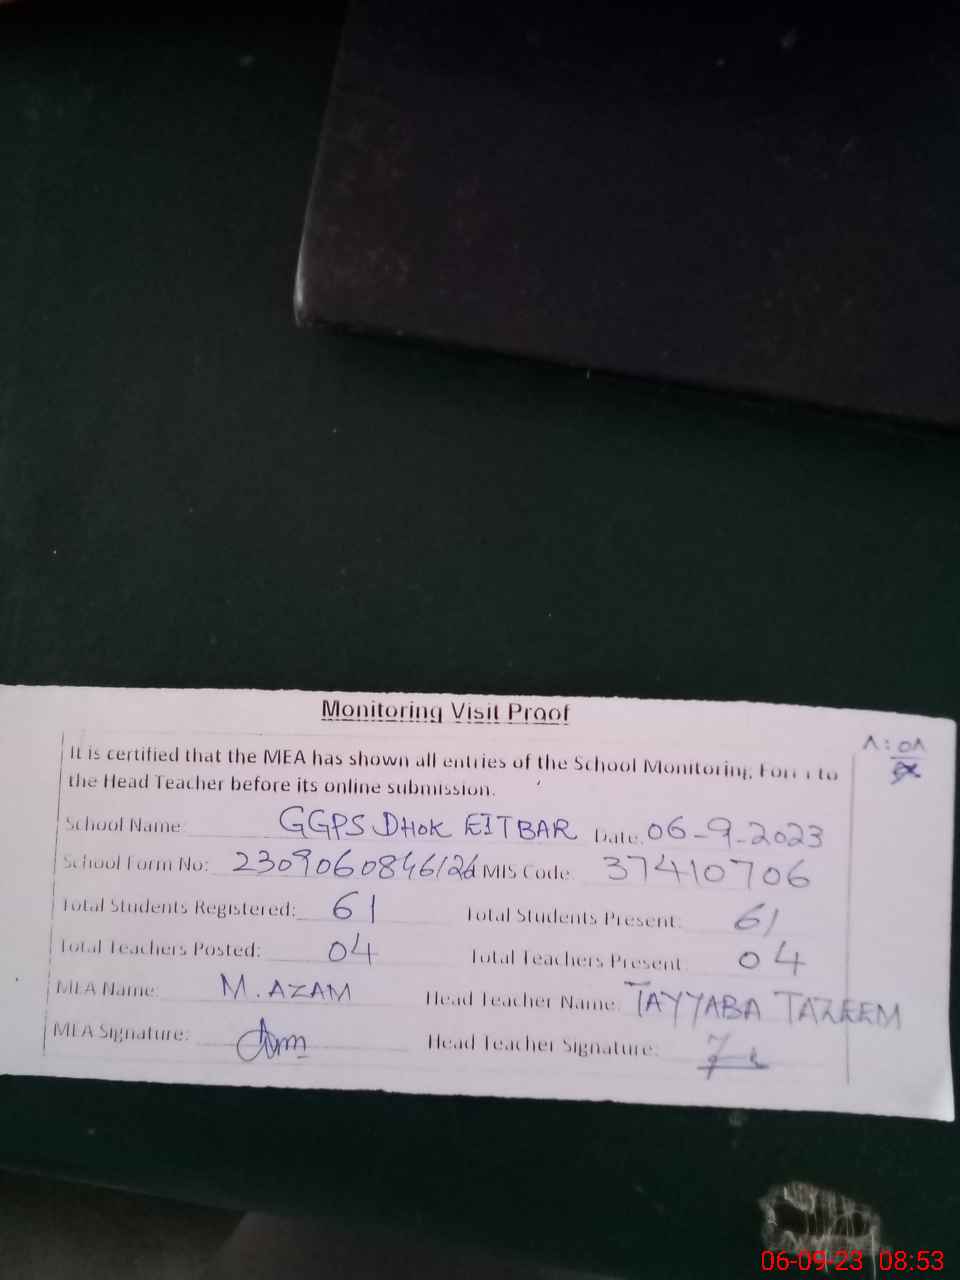 Monitoring Visit Proof
It is certified that the MEA has shown all entries of the School Monitoring Form to
the Head Teacher before its online submission.
School Name: GGPS DHOK EITBAR Date: 06-9-2023
School Form No: MIS Code: 37410706
Total Students Registered: 61 Total Students Present: 61
Total Teachers Posted: 04 Total Teachers Present 04
MEA Name: M. AZAM Head Teacher Name: TAYYABA TAZEEM
MEA Signature: Head Teacher Signature:
06-09-23 08:53